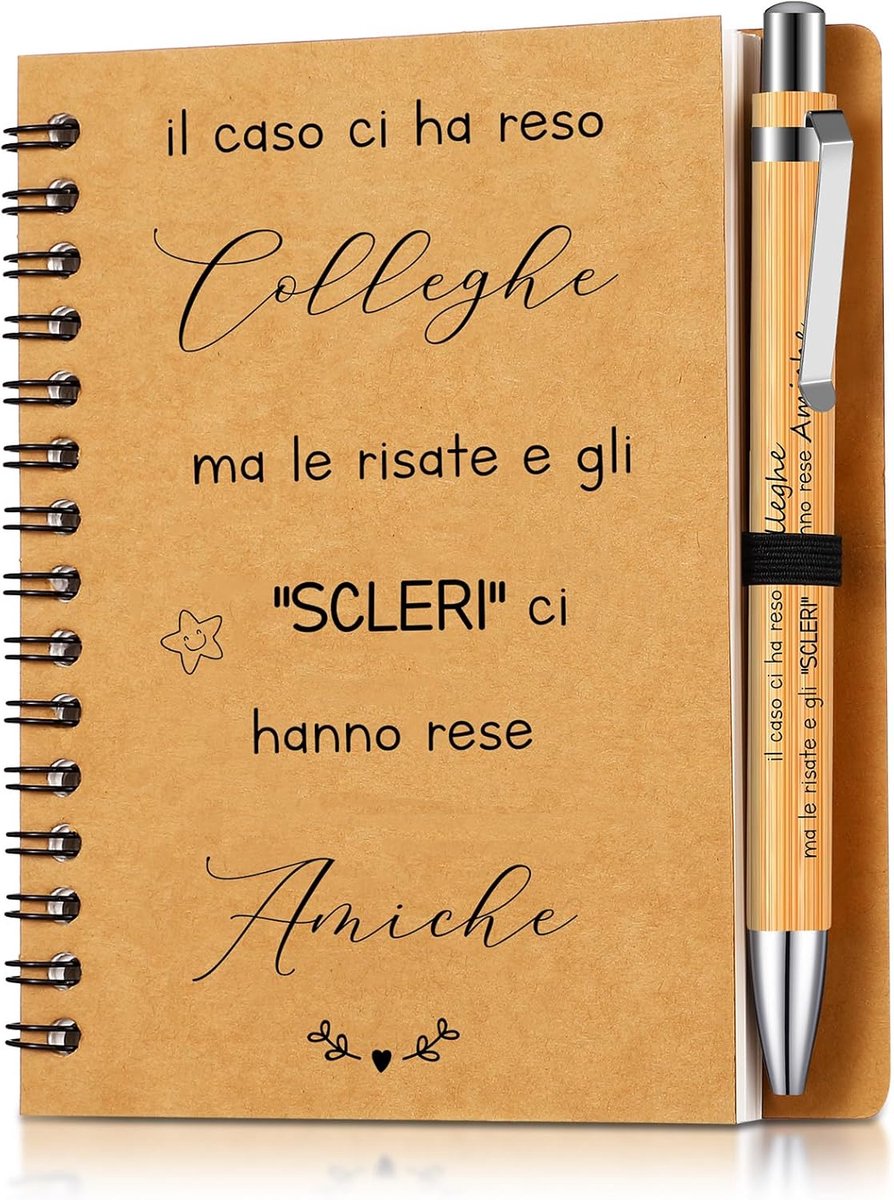 il caso ci ha reso
Colleghe
ma le risate e gli
"SCLERI" ci
hanno rese
Amiche
il caso ci ha reso lleghe
ma le risate e gli "SCLERI" nno rese Amiche